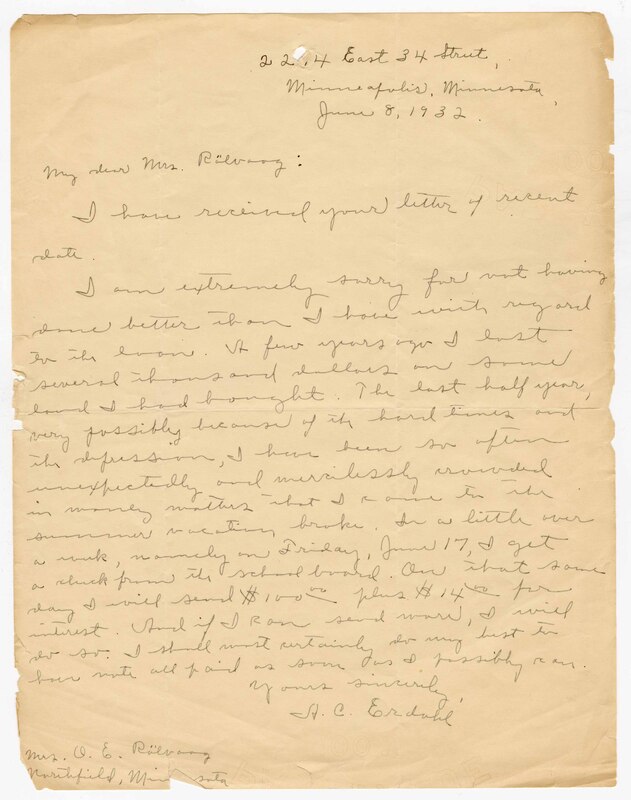 22.4 East 34 Street,
Minneapolis, Minnesota,
June 8, 1932.
My dear Mrs. Rölvaag:
I have received your letter of recent
date.
I am extremely sorry for not having
done better than I have with regard
to the loan. A few years ago I lost
several thousand dollars on some
land I had bought. The last half year,
very possibly because of the hard times and
the depression, I have been so often
unexpectedly and mercilessly crowded
in money matters that I came to the
summer vacation broke. In a little over
a week, namely on Friday, June 17, I get
a check from the school board. On that same
day I will send $100.00 plus $14.00 for
interest. And if I can send more, I will
do so. I should most certainly do my best to
have note all paid as soon as I possibly can.
Yours sincerely,
A. C. Erdahl
Mrs. O. E. Rölvaag
Northfield, Min sota